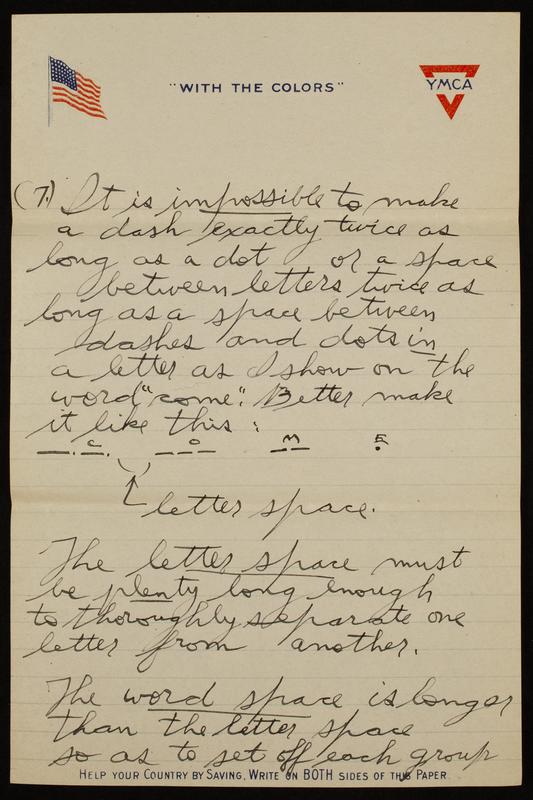 "WITH THE COLORS"
YMCA
(7.) It is impossible to make
a dash exactly twice as
long as a dot or a space
between letters twice as
long as a space between
dashes and dots in
a letter as I show on the
word "come". Better make
it like this :
C O M E
— . — . — — — — — .
letter space.
The letter space must
be plenty long enough
to thoroughly separate one
letter from another.
The word space is longer
than the letter space
so as to set off each group
HELP YOUR COUNTRY BY SAVING. WRITE ON BOTH SIDES OF THIS PAPER